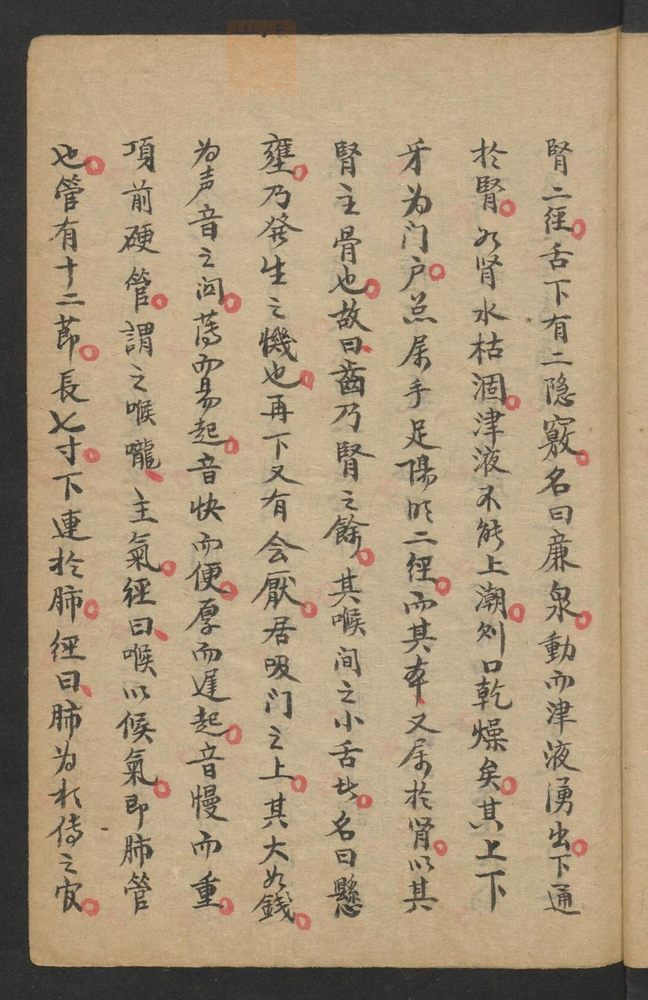 腎二徑。舌下有二隐竅。名曰廉泉。動而津液湧出。下通
於腎。如肾水枯涸。津液不能上潮。则口乾燥矣。其上下
牙为门户。总属手足陽明二經。而其本、又属於肾。以其
腎主骨也。故曰、齒乃腎之餘。其喉间之小舌者。名曰懸
壅。乃發生之機也。再下又有会厭。居吸门之上。其大如錢。
为声音之関。薄而易起。音快而便。厚而遅起。音慢而重。
項前硬管。謂之喉嚨、主氣。經曰、喉以候氣。即肺管
也。管有十二節。長七寸。下連於肺。經曰、肺为相傅之官。